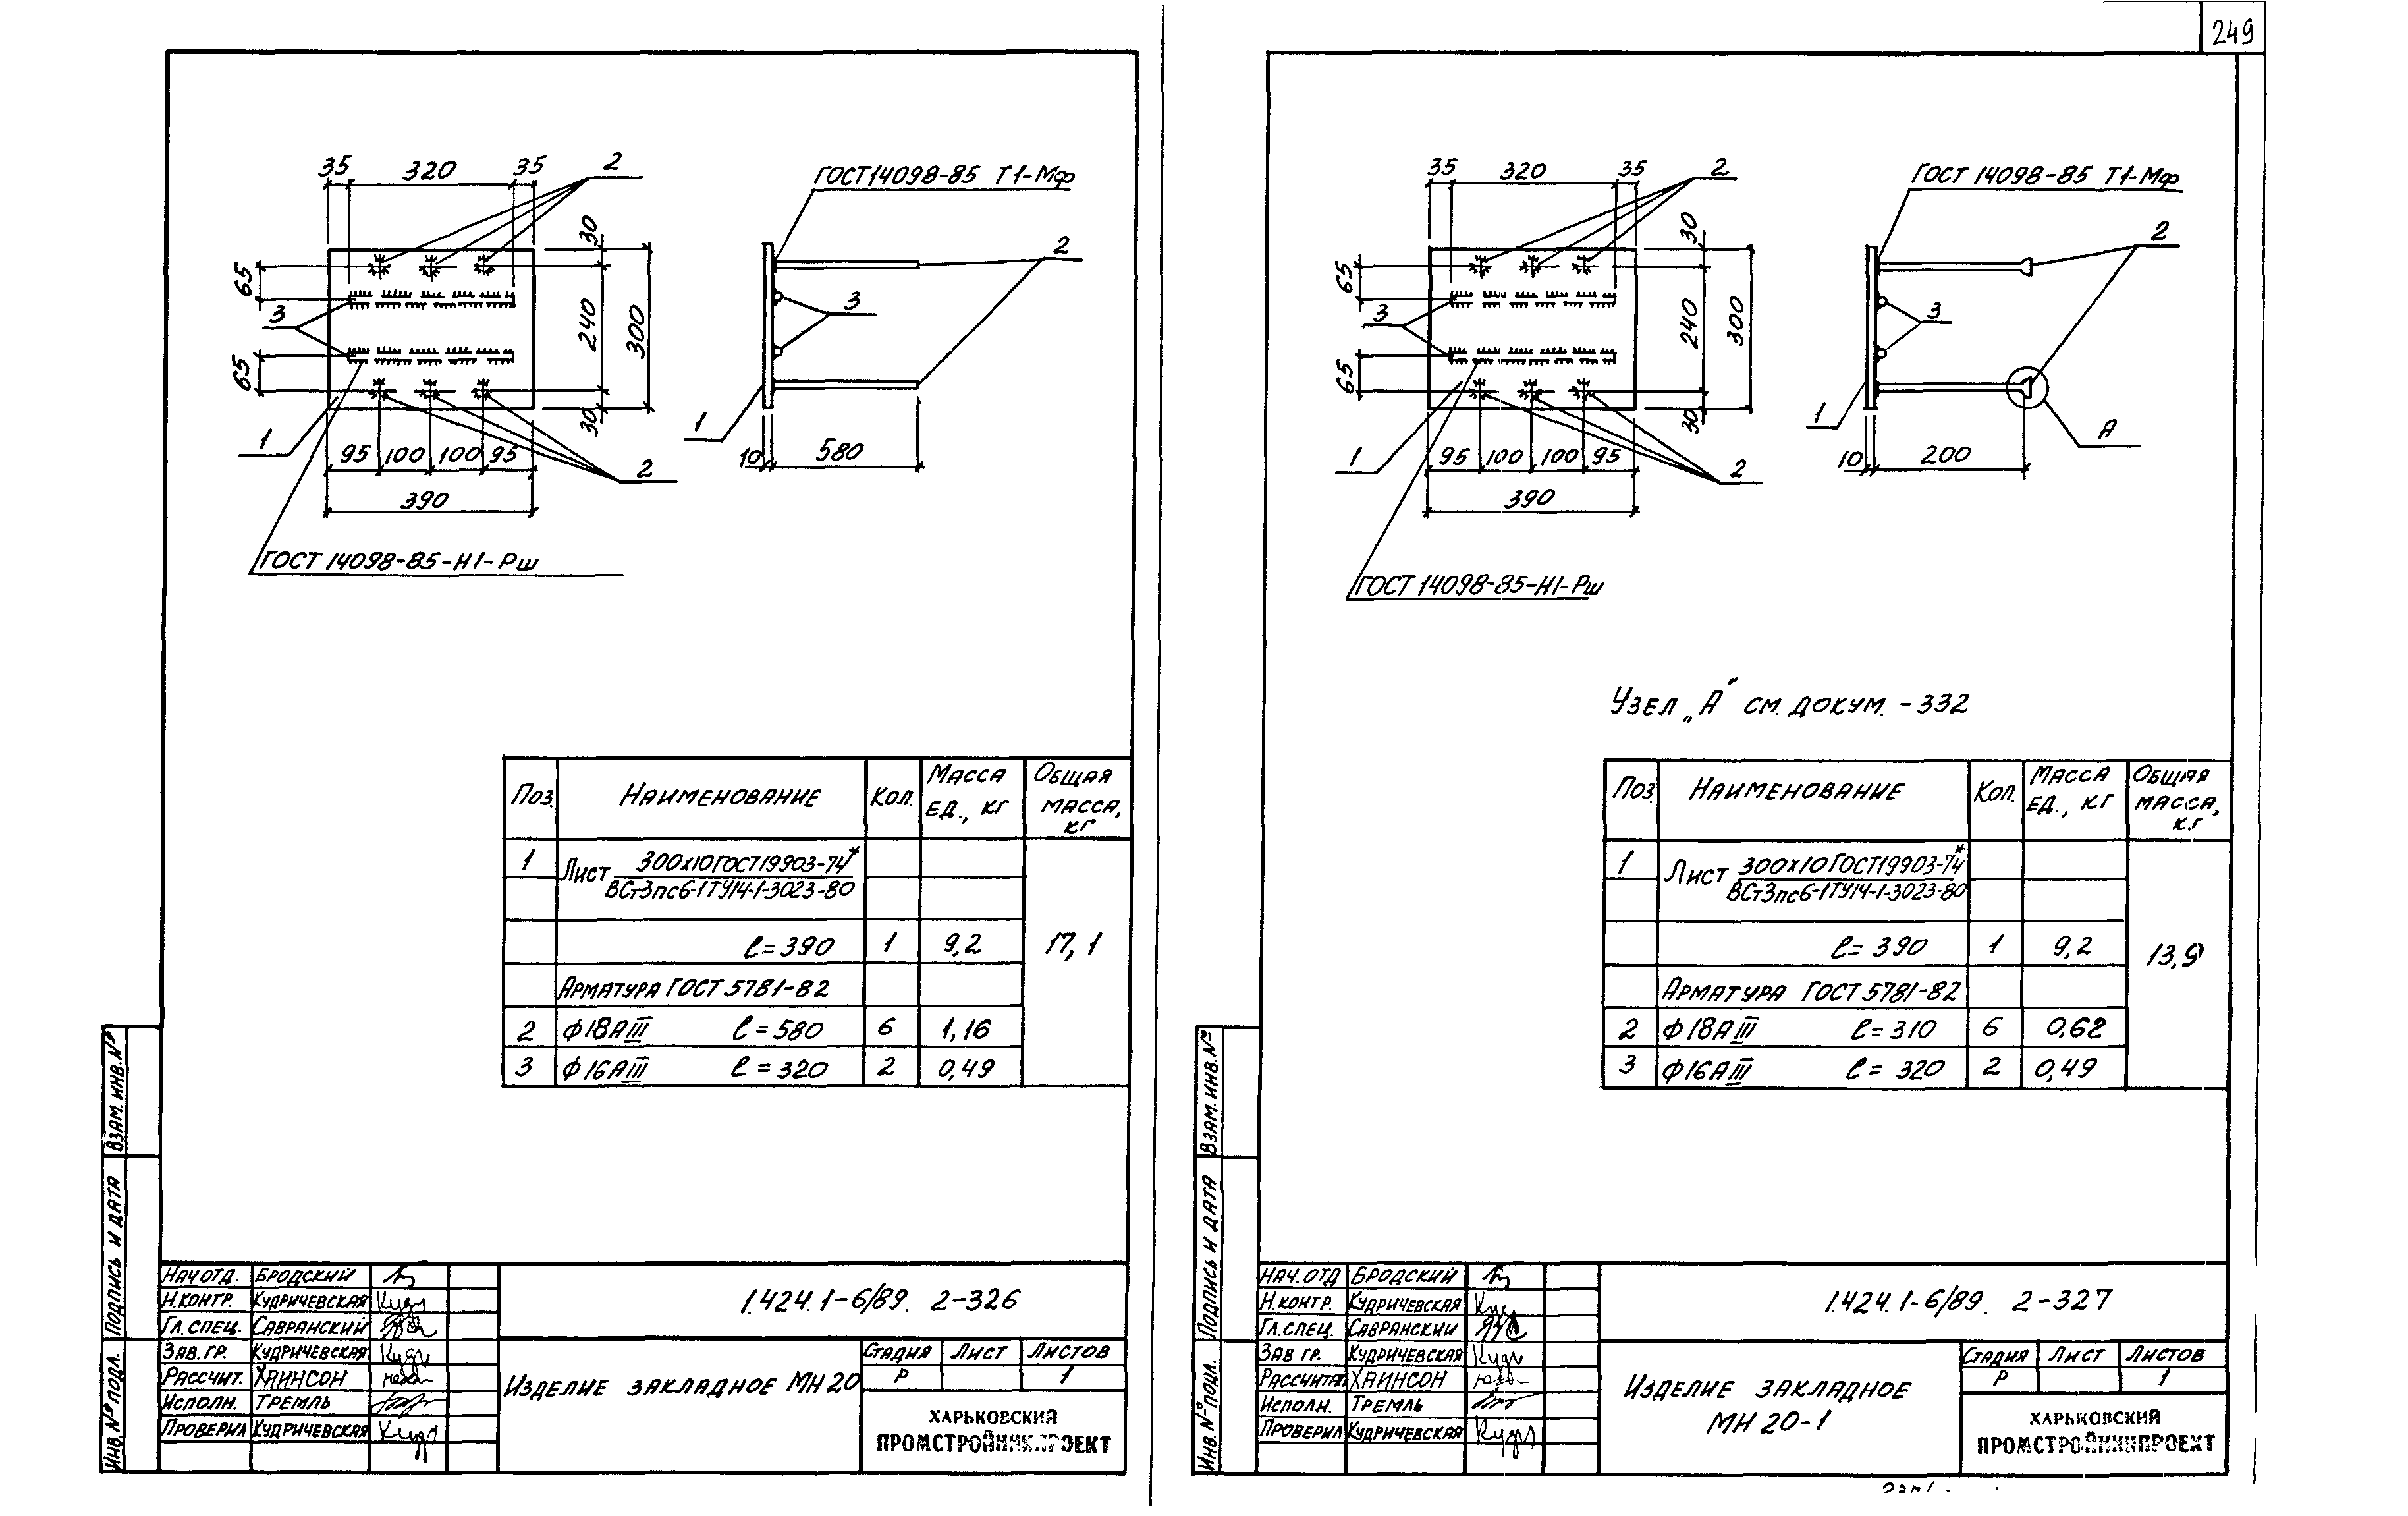 249
35 320 35 2
ГОСТ 14098-85 Т1-Мф
30
65
240
300
3
65
30
1
95 100 100 95
2
390
ГОСТ 14098-85-Н1-Рш
2
3
1
10 580
Поз. Наименование Кол. Масса ед., кг Общая масса, кг
1 Лист 300х10 ГОСТ 19903-74*
ВСт3пс6-1 ТУ14-1-3023-80
ℓ=390 1 9,2 17,1
Арматура ГОСТ 5781-82
2 Ф18АIII ℓ=580 6 1,16
3 Ф16АIII ℓ=320 2 0,49
Взам. инв. №
Подпись и дата
Инв. № подл.
Нач отд. Бродский
Н.контр. Кудричевская
Гл. спец. Савранский
Зав. гр. Кудричевская
Рассчит. Хаинсон
Исполн. Тремль
Проверил Кудричевская
1.424.1-6/89. 2-326
Изделие закладное МН 20
Стадия Лист Листов
Р 1
ХАРЬКОВСКИЙ
ПРОМСТРОЙНИИПРОЕКТ
35 320 35 2
ГОСТ 14098-85 Т1-Мф
30
65
240
300
3
65
30
1
95 100 100 95
2
390
ГОСТ 14098-85-Н1-Рш
2
3
1
А
10 200
Узел „А" см. докум. -332
Поз. Наименование Кол. Масса ед., кг Общая масса, кг
1 Лист 300х10 ГОСТ 19903-74*
ВСт3пс6-1 ТУ14-1-3023-80
ℓ=390 1 9,2 13,9
Арматура ГОСТ 5781-82
2 Ф18АIII ℓ=310 6 0,62
3 Ф16АIII ℓ=320 2 0,49
Взам. инв. №
Подпись и дата
Инв. № подл.
Нач. отд Бродский
Н.контр. Кудричевская
Гл. спец. Савранский
Зав гр. Кудричевская
Рассчитал Хаинсон
Исполн. Тремль
Проверил Кудричевская
1.424.1-6/89. 2-327
Изделие закладное
МН 20-1
Стадия Лист Листов
Р 1
ХАРЬКОВСКИЙ
ПРОМСТРОЙНИИПРОЕКТ